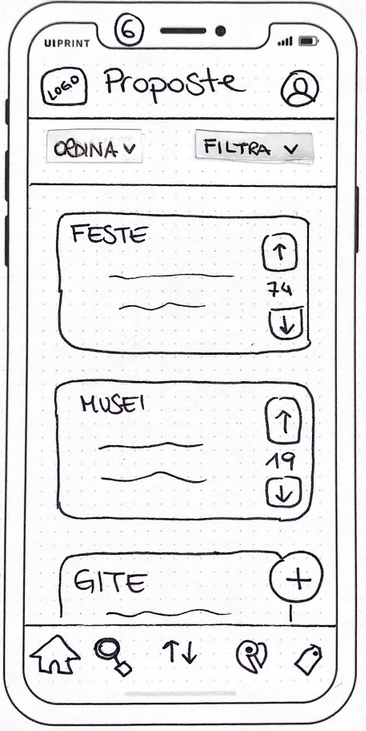 6
UIPRINT
LOGO Proposte
ORDINA FILTRA
FESTE
74
MUSEI
19
GITE
+